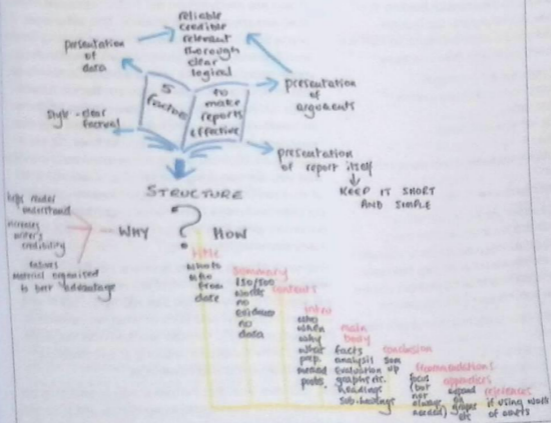 reliable
credible
relevant
thorough
clear
logical
presentation
of
data
presentation
of
arguments
5
factors
to
make
reports
effective
style - clear
factual
presentation
of report itself
KEEP IT SHORT
AND SIMPLE
STRUCTURE
?
WHY
HOW
helps reader
understand
increases
writer's
credibility
material organised
to best advantage
title
who to
who
from
date
summary
150/500
words
no
evidence
no
data
contents
intro
who
when
why
what
prep.
main
body
facts
analysis
evaluation
graphs etc.
headings
sub-headings
conclusion
sum
up
recommendations
focus
(but
not
always
needed)
appendices
expand
on
graphs
etc
references
if using work
of others